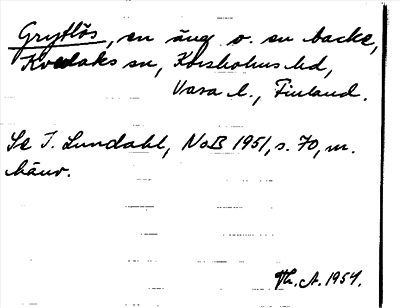 Grytlös, en äng o. en backe,
Kvevlaks sn, Korsholms hd,
Vasa l., Finland.
Se I. Lundahl, NoB 1951, s. 70, m.
hänv.
Th. A. 1954.